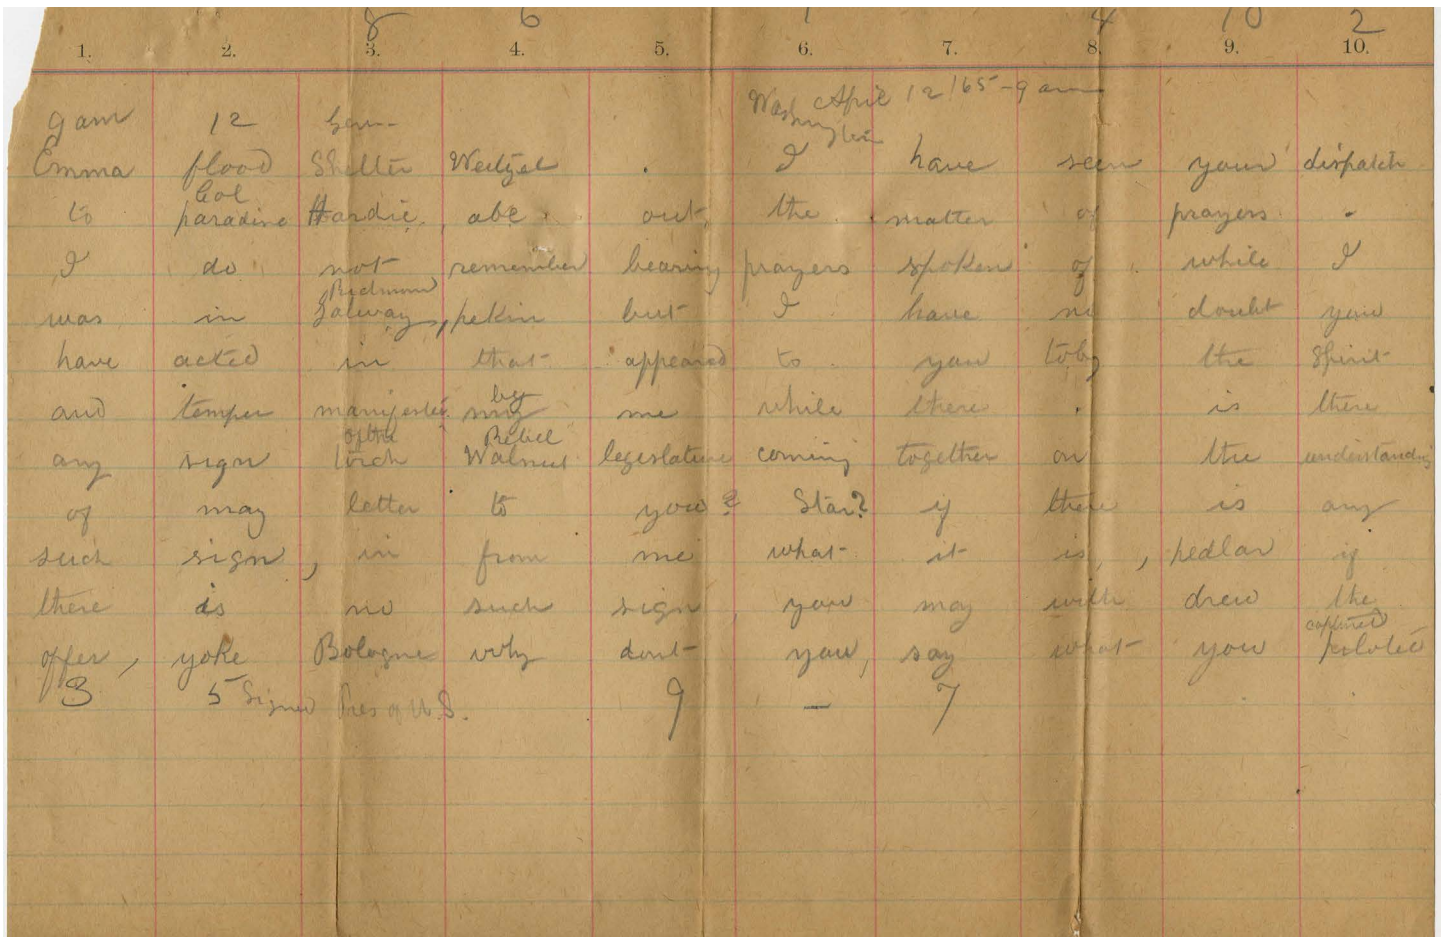 8 6 1 4 10 2
1. 2. 3. 4. 5. 6. 7. 8. 9. 10.
Washington April 12/65-9 am
9 am 12 Gen-
Emma flood Shelter Weitzel . I have seen your dispatch
Col
to paradise Hardie, abe out, the matter of prayers .
I do not remember hearing prayers spoken of while I
Richmond
was in Galway, pekin but I have no doubt you
have acted in that appeared to you to by the Spirit
by
and temper manifested my me while there . is there
of the Rebel
any sign torch Walnut legeslature coming together on the understanding
of may letter to you? Star? if there is any
such sign, in from me what it is, , pedlar if
there is no such sign, you may with drew the
captured
offer, yoke Bologne why dont you, say what you
3 5 Signed Pres of U.S. 9 - 7